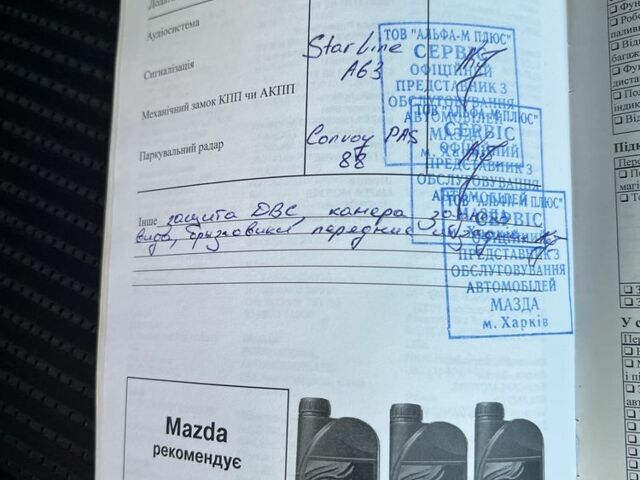 Аудіосистема
Сигналізація
Star Line
A63
Механічний замок КПП чи АКПП
Паркувальний радар
Convoy PAS
88
Інше защита ДВС, камера заднего
вида, брызговики передние
ТОВ "АЛЬФА-М ПЛЮС"
СЕРВІС
ОФІЦІЙНИЙ
ПРЕДСТАВНИК З
ОБСЛУГОВУВАННЯ
АВТОМОБІЛЕЙ
ТОВ "АЛЬФА-М ПЛЮС"
СЕРВІС
ОФІЦІЙНИЙ
ПРЕДСТАВНИК З
ОБСЛУГОВУВАННЯ
АВТОМОБІЛЕЙ
ТОВ "АЛЬФА-М ПЛЮС"
СЕРВІС
ОФІЦІЙНИЙ
ПРЕДСТАВНИК З
ОБСЛУГОВУВАННЯ
АВТОМОБІЛЕЙ
МАЗДА
м. Харків
Mazda
рекомендує